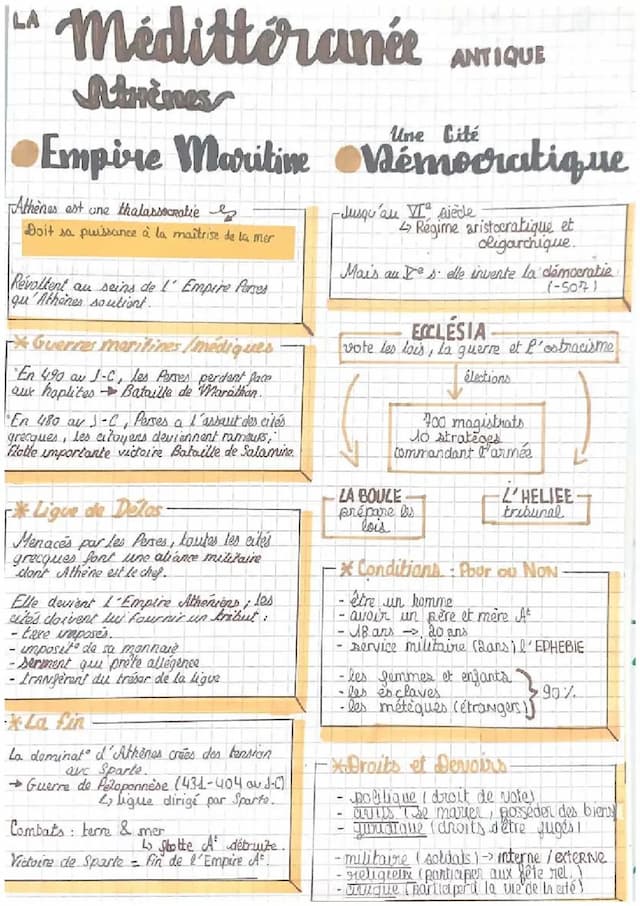 LA Médittéranée ANTIQUE
Athènes
Empire Maritine
Athènes est une thalassocratie
Doit sa puissance à la maîtrise de la mer
Révoltent au seins de l'Empire Perses
qu'Athènes soutient.
* Guerres maritimes/médiques
"En 490 av J-C, les Perses perdent face
aux hoplites → Bataille de Marathon.
"En 480 av J-C, Perses a l'assaut des cités
grecques, les citoyens deviennent rameurs,
flotte importante victoire Bataille de Salamine.
* Ligue de Délos
Menacés par les Perses, toutes les cités
grecques font une aliance militaire
dont Athène est le chef.
Elle devient l'Empire Athéniens ; les
cités doivent lui fournir un tribut :
- taxe imposés.
- imposit° de sa monnaie
- serment qui prête allégence
- transférent du trésor de la ligue
* La fin
La dominat° d'Athènes crées des tension
avc Sparte.
→ Guerre de Péloponnèse (431-404 av J-C)
↳ ligue dirigé par Sparte.
Combats : terre & mer
↳ flotte At détruite.
Victoire de Sparte = fin de l'Empire At.
Une Cité
Démocratique
Jusqu'au VIe siècle
↳ Régime aristocratique et
oligarchique.
Mais au Ve s. elle invente la démocratie
(-507)
ECCLÉSIA
vote les lois, la guerre et l'ostracisme
élections
700 magistrats
10 stratèges
commandant l'armée
LA BOULE
prépare les
lois
L'HELIEE
tribunal
* Conditions : Pour ou NON
- être un homme
- avoir un père et mère At
- 18 ans → 20 ans
- service militaire (2ans) l'EPHEBIE
- les femmes et enfants
- les esclaves
- les métèques (étrangers)
90%
* Droits et Devoirs
- politique (droit de votes
- civils (se marier, posséder des biens
- juridique (droits d'être jugés)
- militaire (soldats) → interne / EXTERNE
- religieux (participer aux fête rel.)
- civique (participer à la vie de la cité)